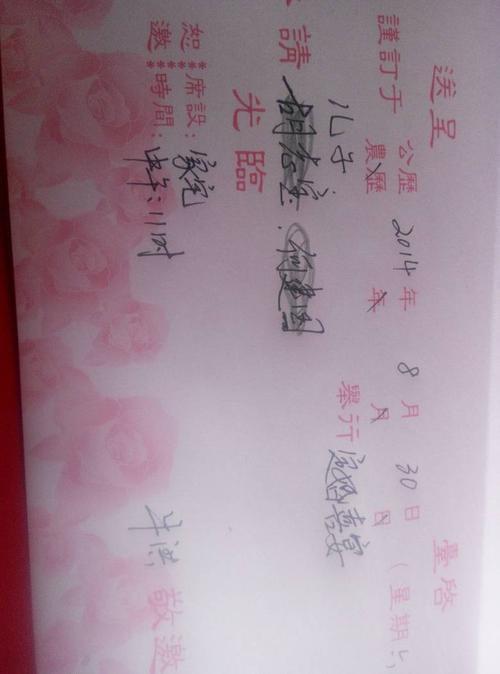 送呈 臺啓
謹訂于 公歷 2014年 8月 30日(星期六)
農歷 年 月 日
儿子 舉行 定婚喜宴
請
光臨
恕邀 席設:家宅
時間:中午:11时
敬邀